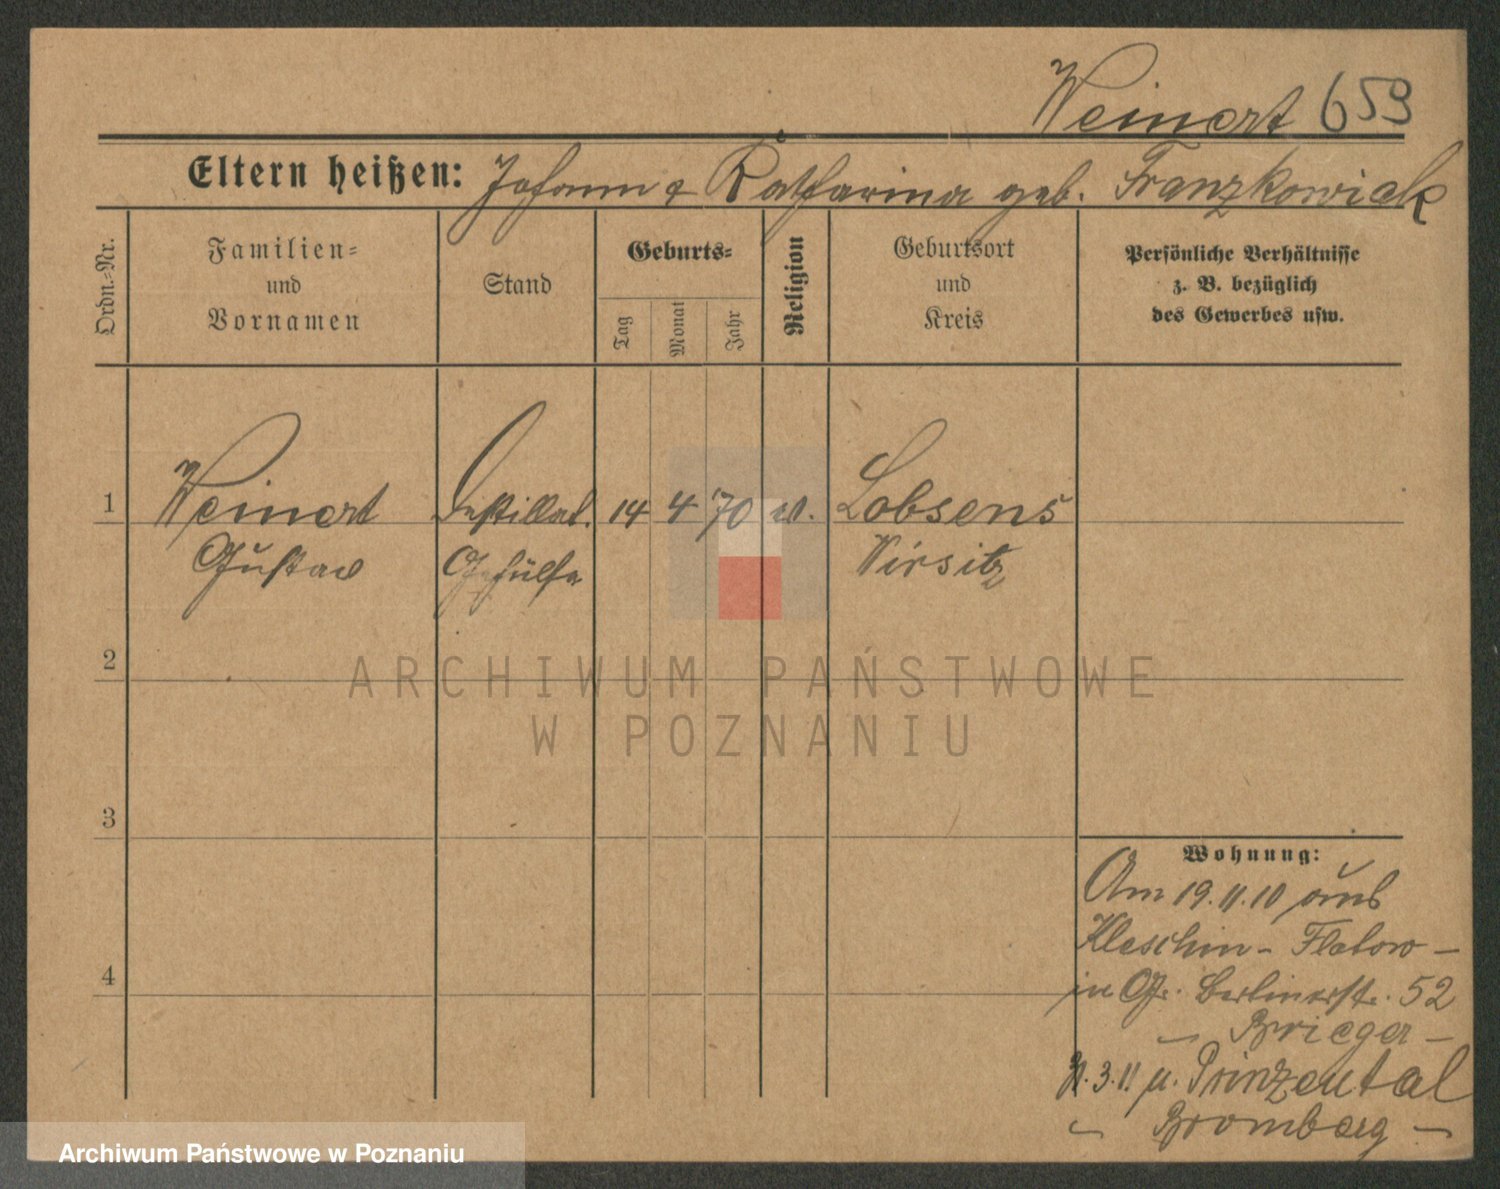 Weinert 653
Eltern heißen: Johann & Katharina geb. Franzkowiak
Ordn.=Nr.
Familien=
und
Vornamen
Stand
Geburts=
Tag
Monat
Jahr
Religion
Geburtsort
und
Kreis
Persönliche Verhältnisse
z. B. bezüglich
des Gewerbes usw.
1 Weinert Destillat. 14 4 70 Lobsens
Gustav Gehülfe Wirsitz
2
ARCHIWUM PAŃSTWOWE
W POZNANIU
3
Wohnung:
Am 19.11.10 aus
Kleschin - Flatow -
4
in Gr. Berlinerstr. 52
- Brieger -
3.11. n. Prinzental
- Bromberg -
Archiwum Państwowe w Poznaniu